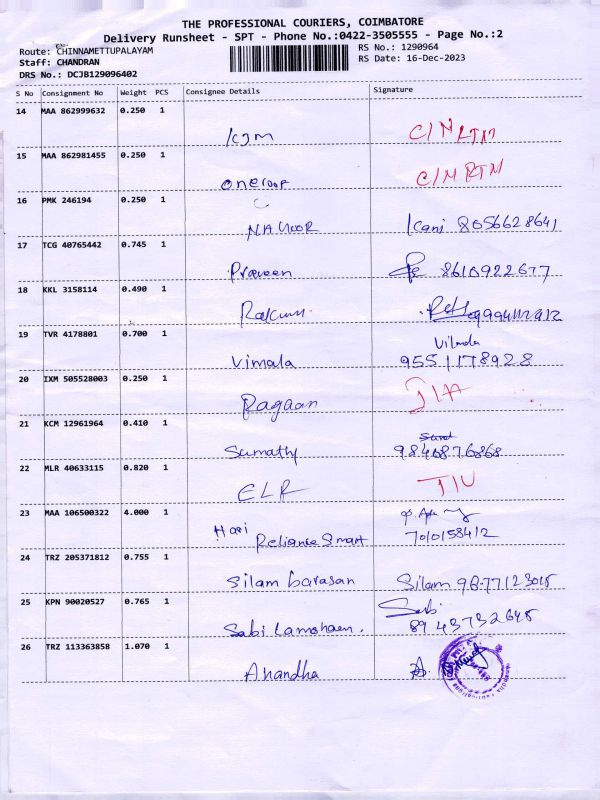 THE PROFESSIONAL COURIERS, COIMBATORE
Delivery Runsheet - SPT - Phone No.:0422-3505555 - Page No.:2
Route: CHINNAMETTUPALAYAM
RS No.: 1290964
Staff: CHANDRAN
RS Date: 16-Dec-2023
DRS No.: DCJB129096402
S No Consignment No Weight PCS Consignee Details Signature
14 MAA 862999632 0.250 1
15 MAA 862981455 0.250 1
oneroof
16 PMK 246194 0.250 1
NAHOOR 8056628641
17 TCG 40765442 0.745 1
Praveen 8610922677
18 KKL 3158114 0.490 1
19 TVR 4178801 0.700 1
Vimala 9551178928
20 IXM 505528003 0.250 1
Ragaan
21 KCM 12961964 0.410 1
Sumathy 9840876868
22 MLR 40633115 0.820 1
ELR
23 MAA 106500322 4.000 1
Hari
Reliance Smart 7010158412
24 TRZ 205371812 0.755 1
Silambarasan Silam
25 KPN 90020527 0.765 1
Sabi 8943732645
26 TRZ 113363858 1.070 1
Anandha